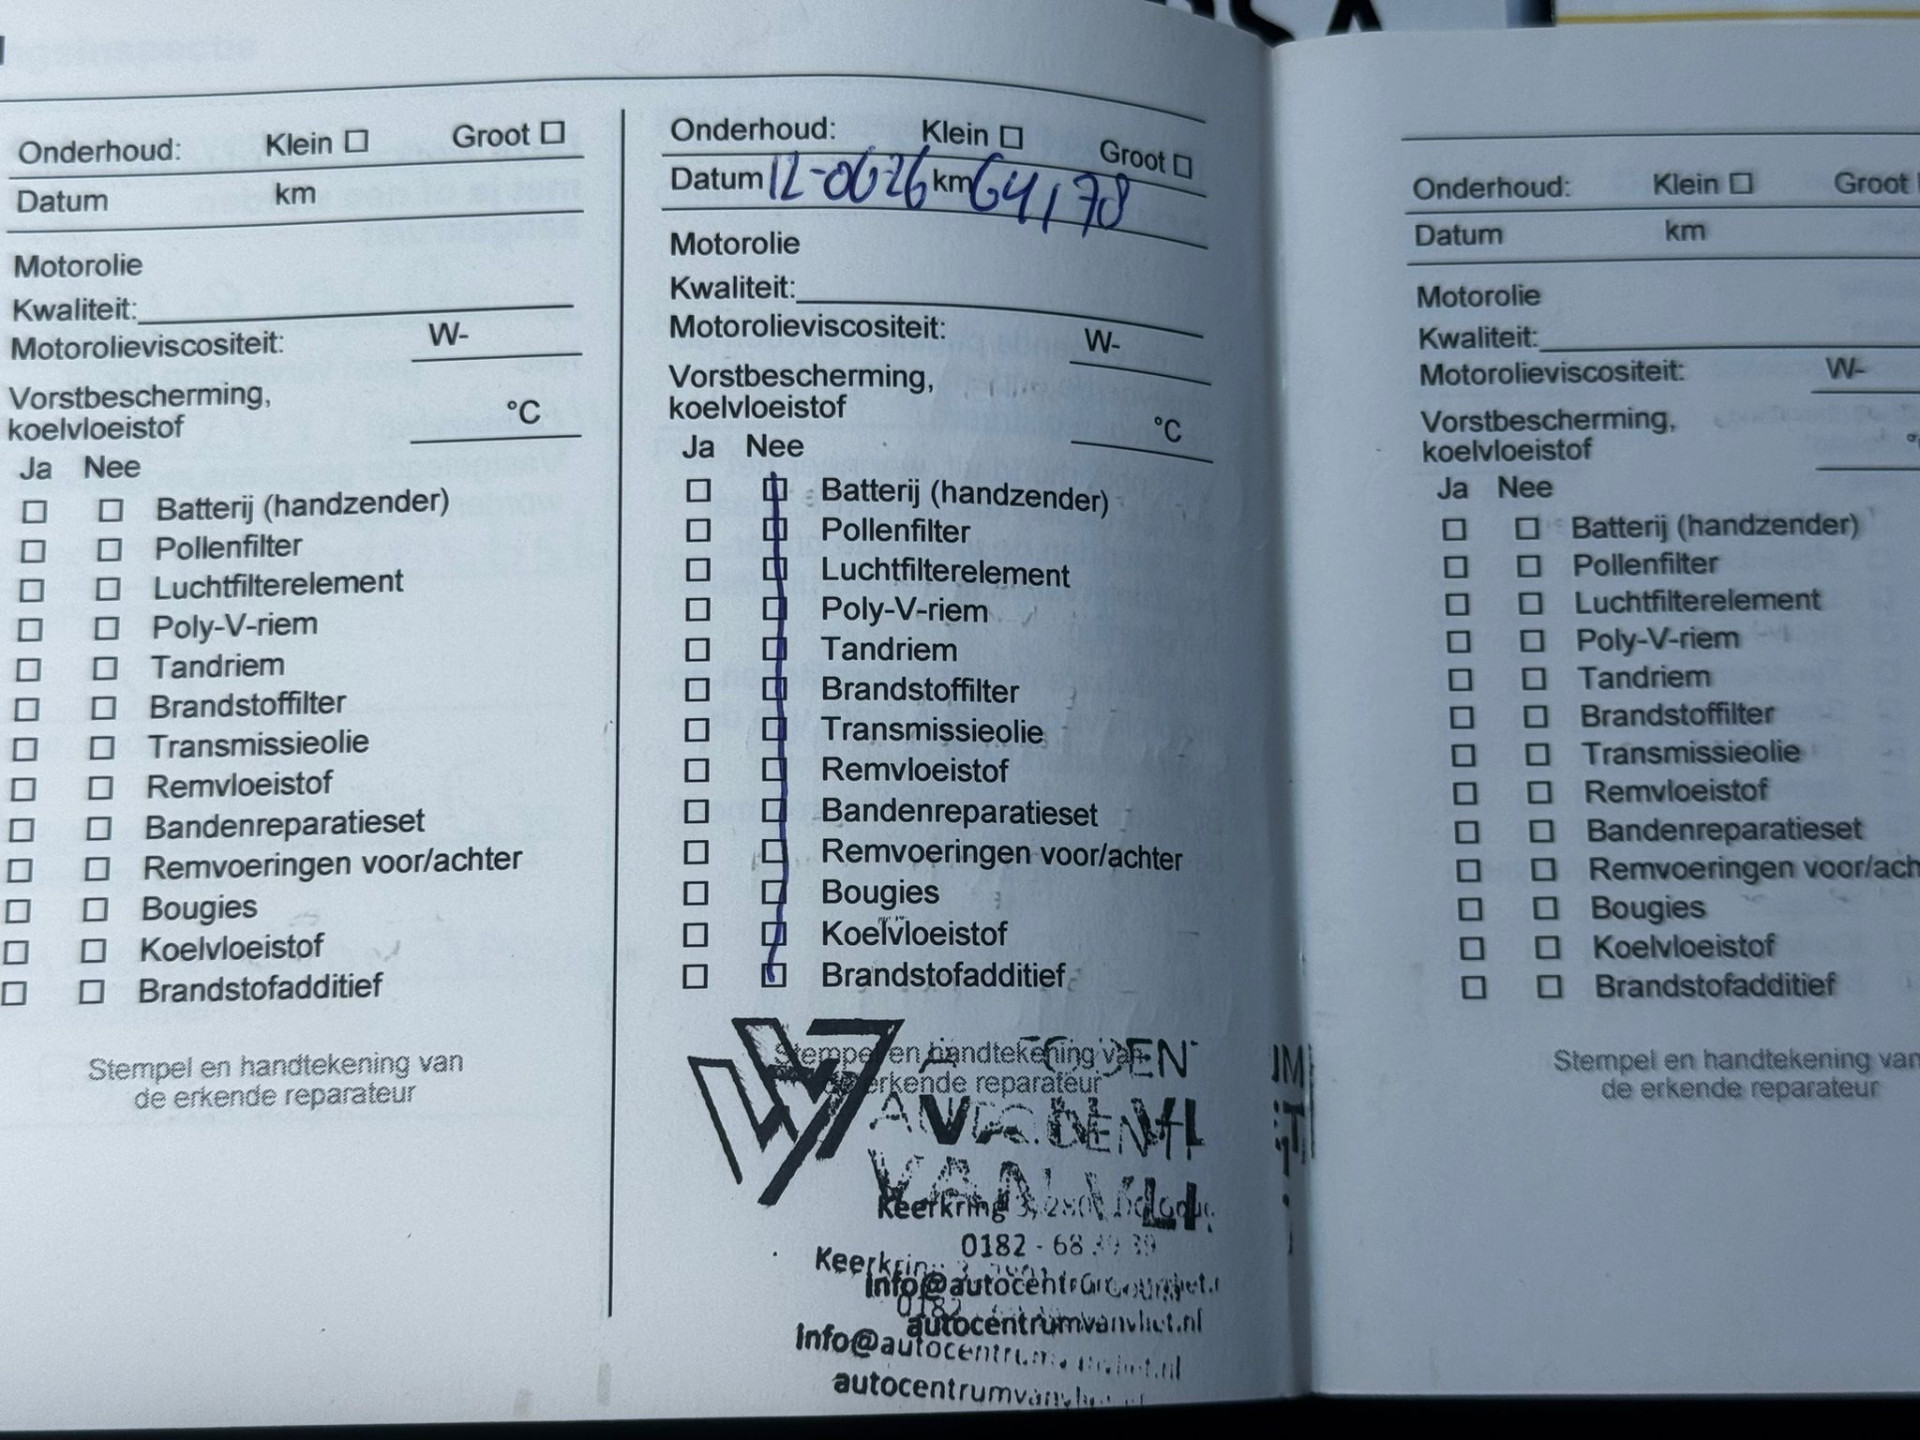 Onderhoud: Klein ☐ Groot ☐
Datum km
Motorolie
Kwaliteit:
Motorolieviscositeit: W-
Vorstbescherming,
koelvloeistof °C
Ja Nee
☐ ☐ Batterij (handzender)
☐ ☐ Pollenfilter
☐ ☐ Luchtfilterelement
☐ ☐ Poly-V-riem
☐ ☐ Tandriem
☐ ☐ Brandstoffilter
☐ ☐ Transmissieolie
☐ ☐ Remvloeistof
☐ ☐ Bandenreparatieset
☐ ☐ Remvoeringen voor/achter
☐ ☐ Bougies
☐ ☐ Koelvloeistof
☐ ☐ Brandstofadditief
Stempel en handtekening van
de erkende reparateur
Onderhoud: Klein ☐ Groot ☐
Datum 12-06-26 km 64178
Motorolie
Kwaliteit:
Motorolieviscositeit: W-
Vorstbescherming,
koelvloeistof °C
Ja Nee
☐ ☐ Batterij (handzender)
☐ ☐ Pollenfilter
☐ ☐ Luchtfilterelement
☐ ☐ Poly-V-riem
☐ ☐ Tandriem
☐ ☐ Brandstoffilter
☐ ☐ Transmissieolie
☐ ☐ Remvloeistof
☐ ☐ Bandenreparatieset
☐ ☐ Remvoeringen voor/achter
☐ ☐ Bougies
☐ ☐ Koelvloeistof
☐ ☐ Brandstofadditief
Stempel en handtekening van
de erkende reparateur
Keerkring 3,
0182 - 68 39 39
autocentrumvanvliet.nl
Onderhoud: Klein ☐ Groot
Datum km
Motorolie
Kwaliteit:
Motorolieviscositeit: W-
Vorstbescherming,
koelvloeistof
Ja Nee
☐ ☐ Batterij (handzender)
☐ ☐ Pollenfilter
☐ ☐ Luchtfilterelement
☐ ☐ Poly-V-riem
☐ ☐ Tandriem
☐ ☐ Brandstoffilter
☐ ☐ Transmissieolie
☐ ☐ Remvloeistof
☐ ☐ Bandenreparatieset
☐ ☐ Remvoeringen voor/ach
☐ ☐ Bougies
☐ ☐ Koelvloeistof
☐ ☐ Brandstofadditief
Stempel en handtekening van
de erkende reparateur